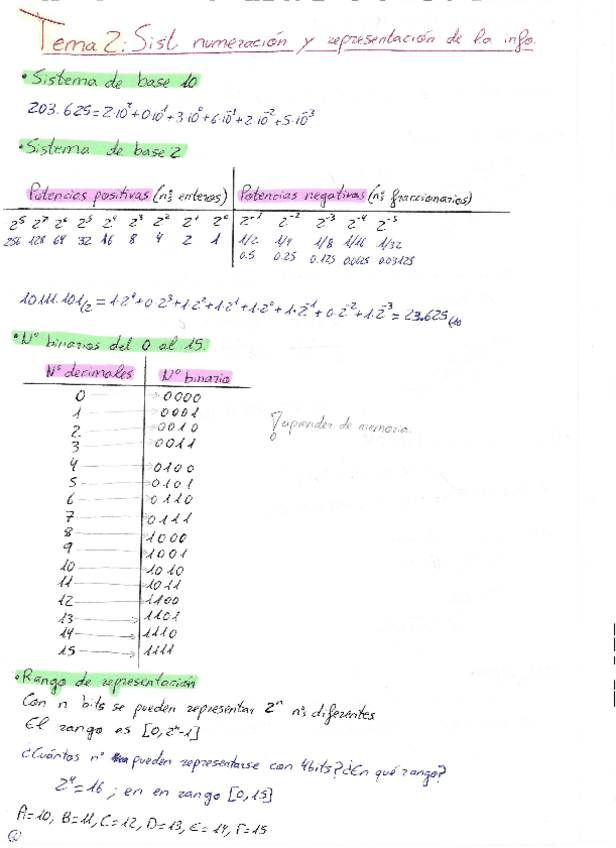 Tema 2: Sist. numeración y representación de la info.
• Sistema de base 10
203.625 = 2·10² + 0·10¹ + 3·10⁰ + 6·10⁻¹ + 2·10⁻² + 5·10⁻³
• Sistema de base 2
Potencias positivas (nºs enteros) Potencias negativas (nºs fraccionarios)
2⁸ 2⁷ 2⁶ 2⁵ 2⁴ 2³ 2² 2¹ 2⁰ 2⁻¹ 2⁻² 2⁻³ 2⁻⁴ 2⁻⁵
256 128 64 32 16 8 4 2 1 1/2 1/4 1/8 1/16 1/32
0.5 0.25 0.125 0.0625 0.03125
10111.101/2 = 1·2⁴ + 0·2³ + 1·2² + 1·2¹ + 1·2⁰ + 1·2⁻¹ + 0·2⁻² + 1·2⁻³ = 23.625(10
• Nº binarios del 0 al 15.
Nº decimales Nº binario
0 → 0000
1 → 0001
2 → 0010
3 → 0011
¡aprender de memoria.
4 → 0100
5 → 0101
6 → 0110
7 → 0111
8 → 1000
9 → 1001
10 → 1010
11 → 1011
12 → 1100
13 → 1101
14 → 1110
15 → 1111
• Rango de representación
Con n bits se pueden representar 2ⁿ nºs diferentes
El rango es [0, 2ⁿ-1]
¿Cuántos nº pueden representarse con 4bits? ¿En qué rango?
2⁴ = 16 ; en en rango [0, 15]
A=10, B=11, C=12, D=13, E=14, F=15